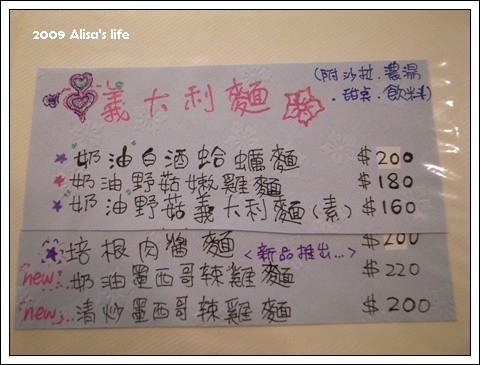 2009 Alisa's life
義大利麵
(附沙拉.濃湯
.甜点.飲料)
奶油白酒蛤蠣麵 $200
奶油野菇嫩雞麵 $180
奶油野菇義大利麵(素) $160
培根肉醬麵<新品推出...> $200
new 奶油墨西哥辣雞麵 $220
new 清炒墨西哥辣雞麵 $200